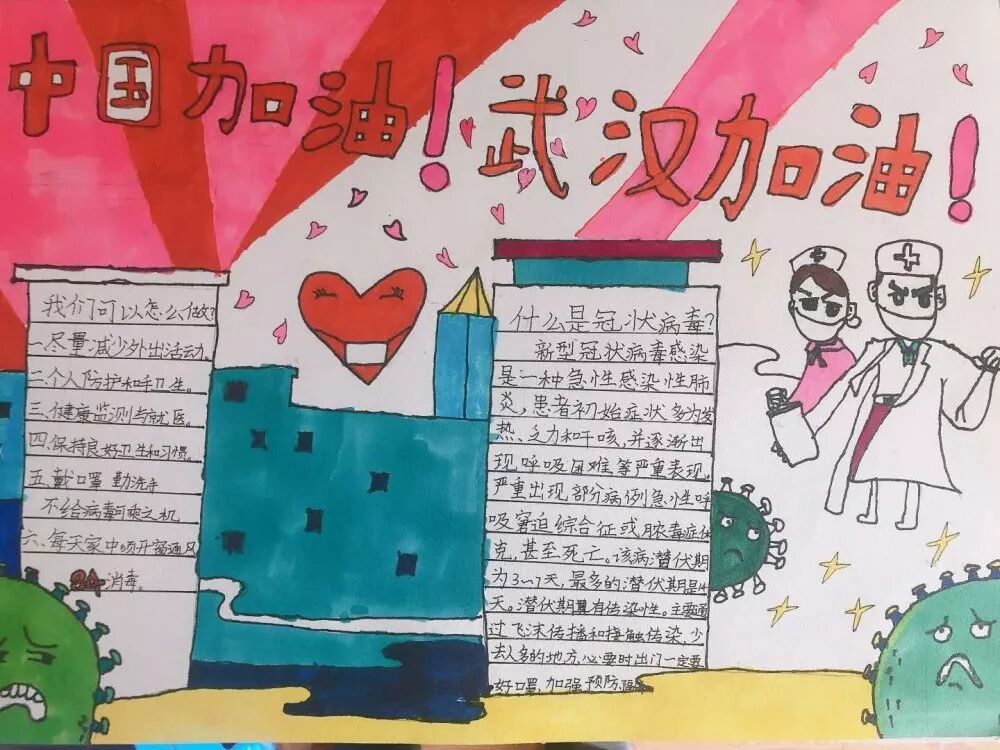 中国加油！武汉加油！
我们可以怎么做？
一.尽量减少外出活动。
二.个人防护和手卫生。
三.健康监测与就医。
四.保持良好卫生和习惯。
五.戴口罩 勤洗手
不给病毒可乘之机
六、每天家中须开窗通风
消毒。
什么是冠状病毒？
新型冠状病毒感染
是一种急性感染性肺
炎，患者初始症状多为发
热、乏力和干咳，并逐渐出
现呼吸困难等严重表现。
严重出现部分病例急性呼
吸窘迫综合征或脓毒症休
克，甚至死亡。该病潜伏期
为3~7天，最多的潜伏期是
天。潜伏期具有传染性。主要通
过飞沫传播和接触传染，少
去人多的地方，必要时出门一定要
好口罩，加强预防